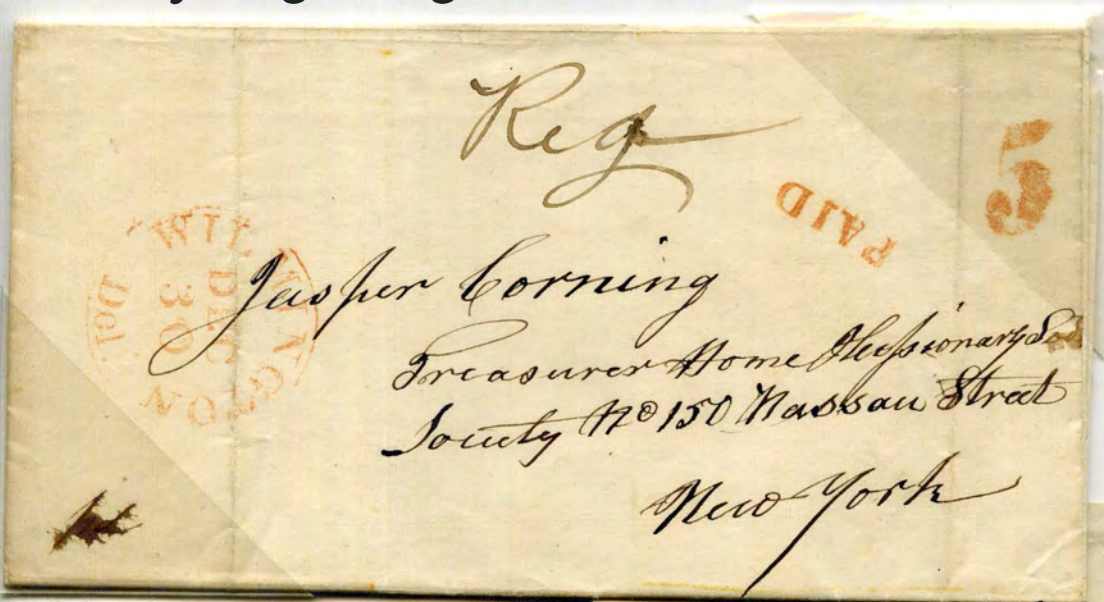 Reg
PAID
5
WILMINGTON
Del.
DEC
30
Jasper Corning
Treasurer Home Missionary
Society No 150 Nassau Street
New York